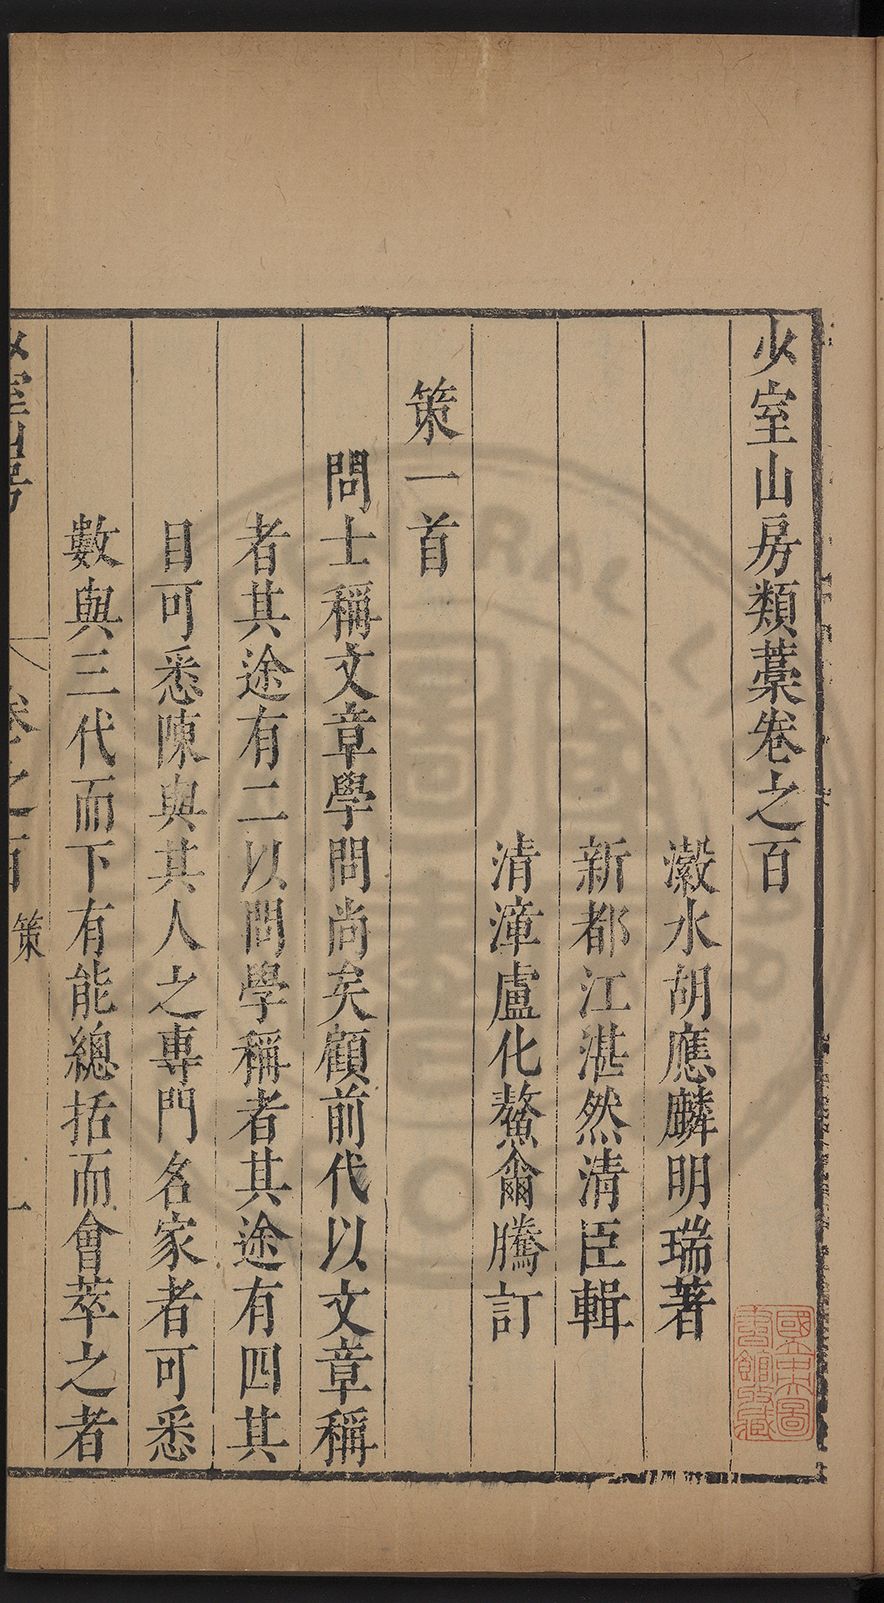 少室山房類藁卷之百
瀫水胡應麟明瑞著
新都江湛然清臣輯
清漳盧化鰲爾騰訂
策一首
問士稱文章學問尚矣顧前代以文章稱
者其途有二以問學稱者其途有四其
目可悉陳與其人之專門名家者可悉
數與三代而下有能總括而會萃之者
少室山房
卷之百 策
一
國立中央圖書館收藏